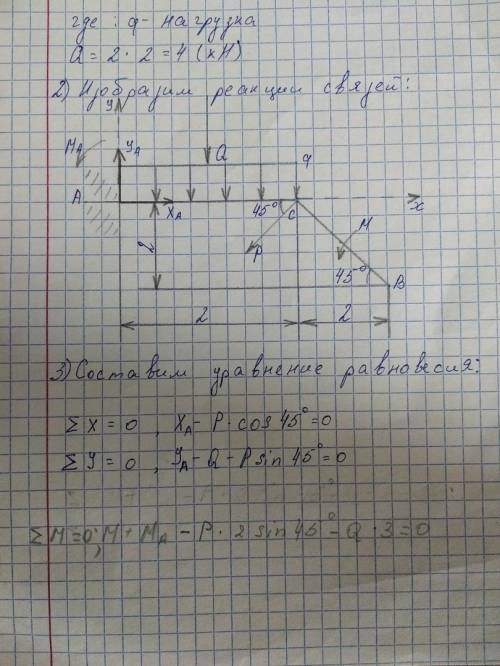 где : q- нагрузка
Q = 2 · 2 = 4 (кН)
2) Изобразим реакции связей:
y
MA yA Q q
A XA 45° C x
2 P M
45° B
2 2
3) Составим уравнение равновесия:
Σ X = 0 , XA - P · cos 45° = 0
Σ Y = 0 , YA - Q - P sin 45° = 0
Σ M = 0; M + MA - P · 2 sin 45° - Q · 3 = 0